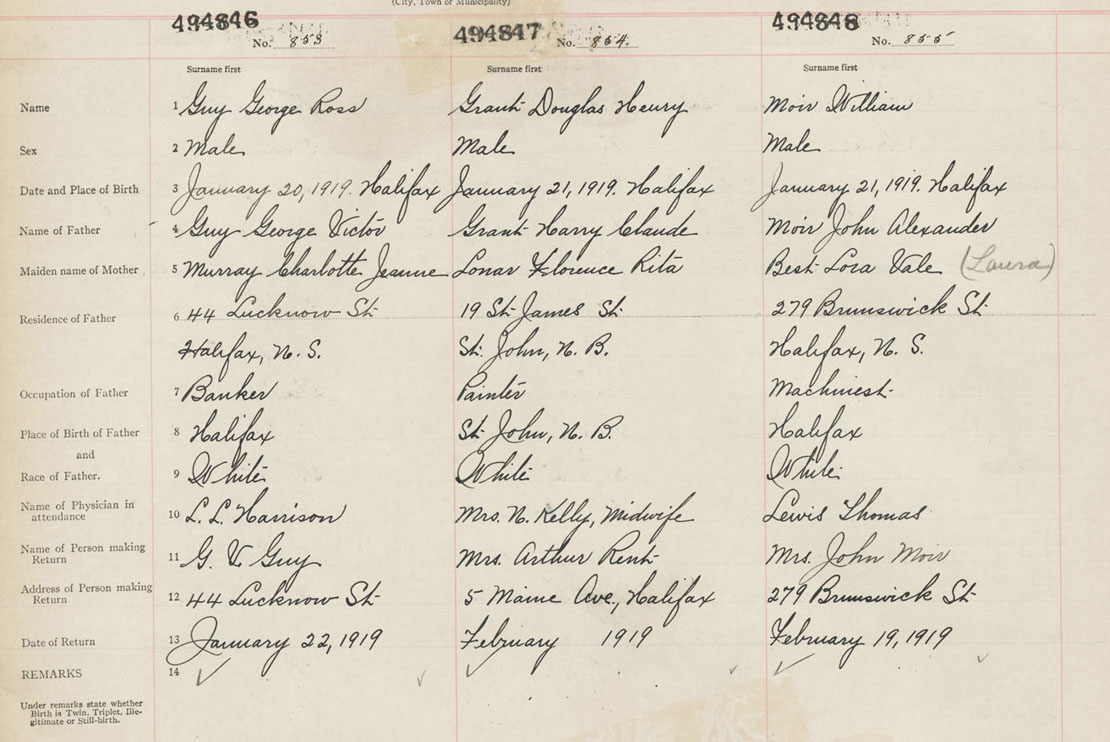 (City, Town or Municipality)
494846 494847 494848
No. 853 No. 854. No. 855
Surname first Surname first Surname first
Name 1 Guy George Ross Grant Douglas Henry Moir William
Sex 2 Male Male Male
Date and Place of Birth 3 January 20, 1919. Halifax January 21, 1919. Halifax January 21, 1919. Halifax
Name of Father 4 Guy George Victor Grant Harry Claude Moir John Alexander
Maiden name of Mother 5 Murray Charlotte Jeanne Lonar Florence Rita Best Lora Vale (Laura)
Residence of Father 6 44 Lucknow St 19 St James St 279 Brunswick St
Halifax, N. S. St. John, N. B. Halifax, N. S.
Occupation of Father 7 Banker Painter Machinest
Place of Birth of Father 8 Halifax St John, N. B. Halifax
and
Race of Father. 9 White White White
Name of Physician in attendance 10 L. L. Harrison Mrs. N. Kelly, Midwife Lewis Thomas
Name of Person making Return 11 G. V Guy Mrs. Arthur Rent Mrs. John Moir
Address of Person making Return 12 44 Lucknow St 5 Maine Ave., Halifax 279 Brunswick St
Date of Return 13 January 22, 1919 February 1919 February 19, 1919
REMARKS 14
Under remarks state whether
Birth is Twin, Triplet, Ille-
gitimate or Still-birth.